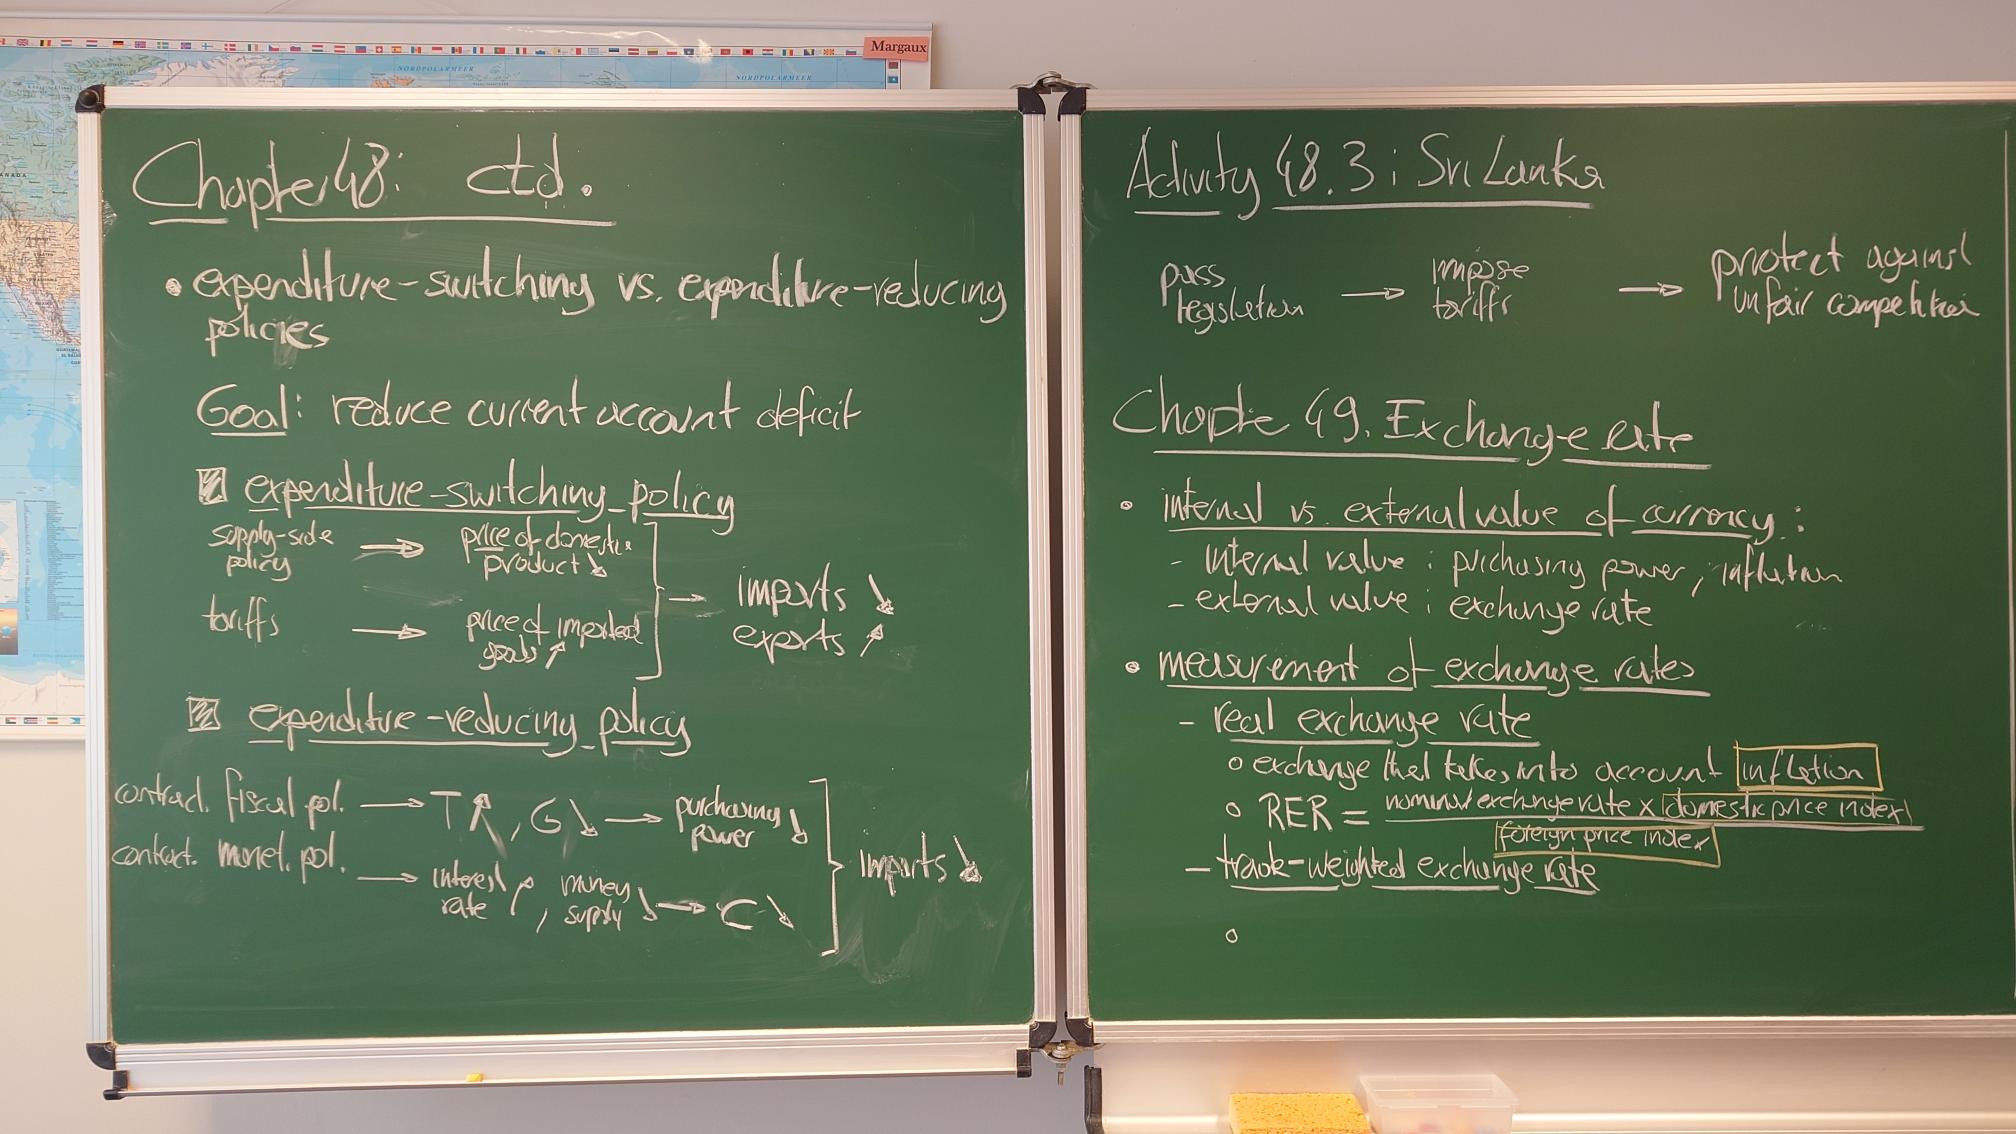 Margaux
NORDPOLARMEER
NORDPOLARMEER
Chapter 48: ctd.
• expenditure-switching vs. expenditure-reducing
policies
Goal: reduce current account deficit
expenditure-switching policy
supply-side
policy → price of domestic
product ↘
tariffs → price of imported
goods ↗
→ imports ↘
exports ↗
expenditure-reducing policy
contract. fiscal pol. → T↗, G↘ → purchasing
power ↘
contract. monet. pol. → interest
rate ↗, money
supply ↘ → C ↘
imports ↘
Activity 48.3: Sri Lanka
pass
legislation → impose
tariffs → protect against
unfair competition
Chapte 49. Exchange rate
• internal vs. external value of currency:
- internal value: purchasing power, inflation
- external value: exchange rate
• measurement of exchange rates
- real exchange rate
o exchange that takes into account inflation
o RER = nominal exchange rate x domestic price index
foreign price index
- trade-weighted exchange rate
o